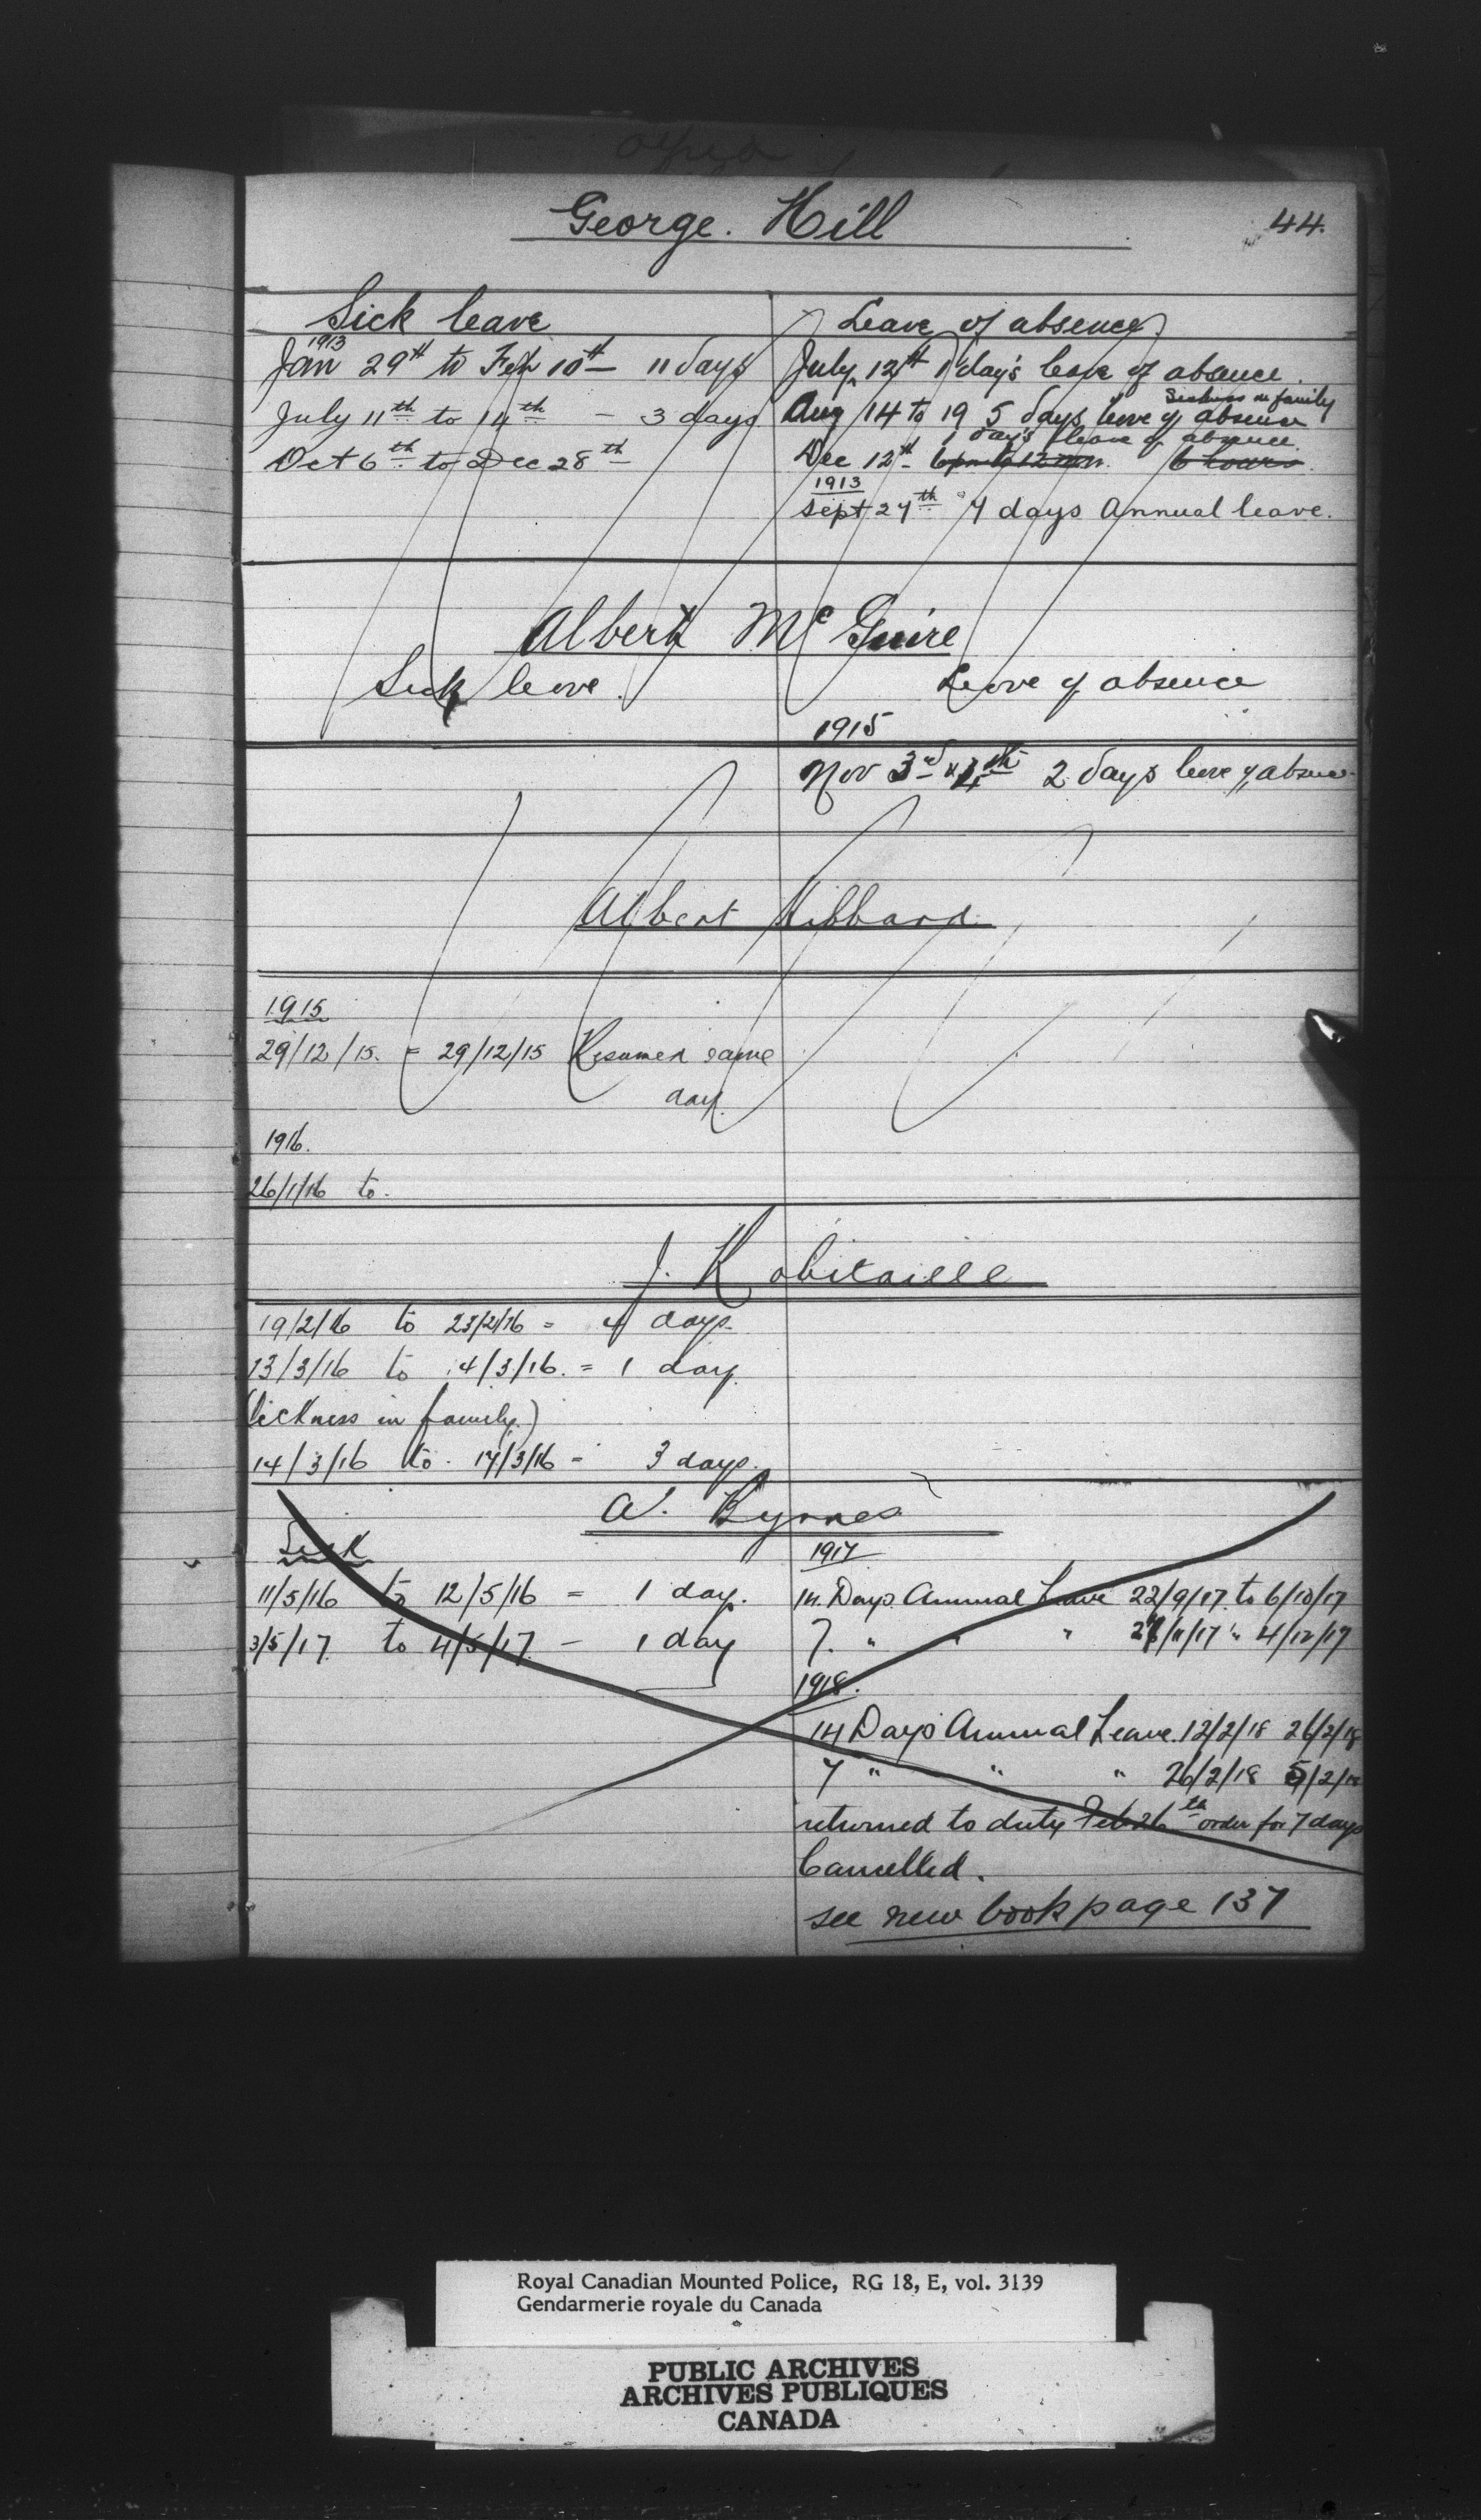 George. Hill
44.
Sick leave
Leave of absence
1913
Jan 29th to Feb 10th — 11 days
July 12th 1 day's leave of absence.
Sickness in family
July 11th to 14th — 3 days
Aug 14 to 19 5 days leave of absence
1 day's leave of absence
Oct 6th to Dec 28th
Dec 12th - 6 hours.
1913
Sept 27th 7 days Annual leave.
Albert McGuire
Sick leave.
Leave of absence
1915
Nov 3rd & 4th 2 days leave of absence
Albert Hibbard
1915
29/12/15. = 29/12/15 Resumed same
day.
1916.
26/1/16 to.
J. Robitaille
19/2/16 to 23/2/16 = 4 days.
13/3/16 to 14/3/16. = 1 day.
(Sickness in family.)
14/3/16 to. 17/3/16 - 3 days.
A. Byrnes
Sick
1917
11/5/16 to 12/5/16 = 1 day.
14. Days Annual Leave 22/9/17. to 6/10/17
3/5/17. to 4/5/17. — 1 day
7. " " " 27/11/17 " 4/12/17
1918.
14 Days Annual Leave. 12/2/18 26/2/18
7 " " " 26/2/18 5/2/18
returned to duty Feb 26th order for 7 days
Cancelled.
see new book page 137
Royal Canadian Mounted Police, RG 18, E, vol. 3139
Gendarmerie royale du Canada
PUBLIC ARCHIVES
ARCHIVES PUBLIQUES
CANADA